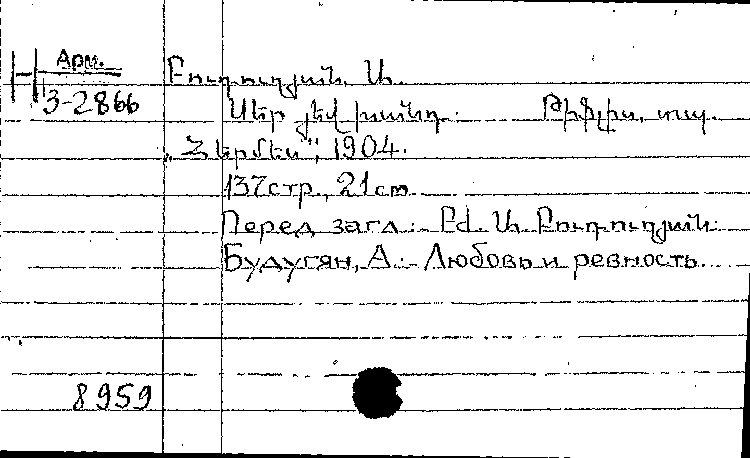 Арм.
3-2866
Բուդուղյան, Ա.
Սեր յեվ խանդ: Թիֆլիս, տպ.
„Հերմես", 1904.
137стр., 21см
Перед загл.: Բժ. Ա. Բուդուղյան:
Будугян, А. - Любовь и ревность.
8959